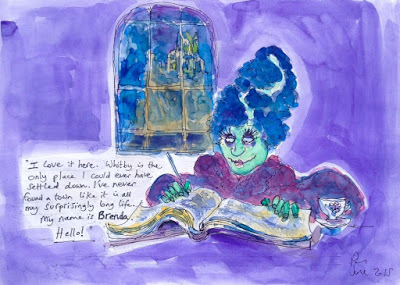 "I love it here. Whitby is the
only place I could ever have
settled down. I've never
found a town like it in all
my surprisingly long life.
My name is Brenda.
Hello!
2015